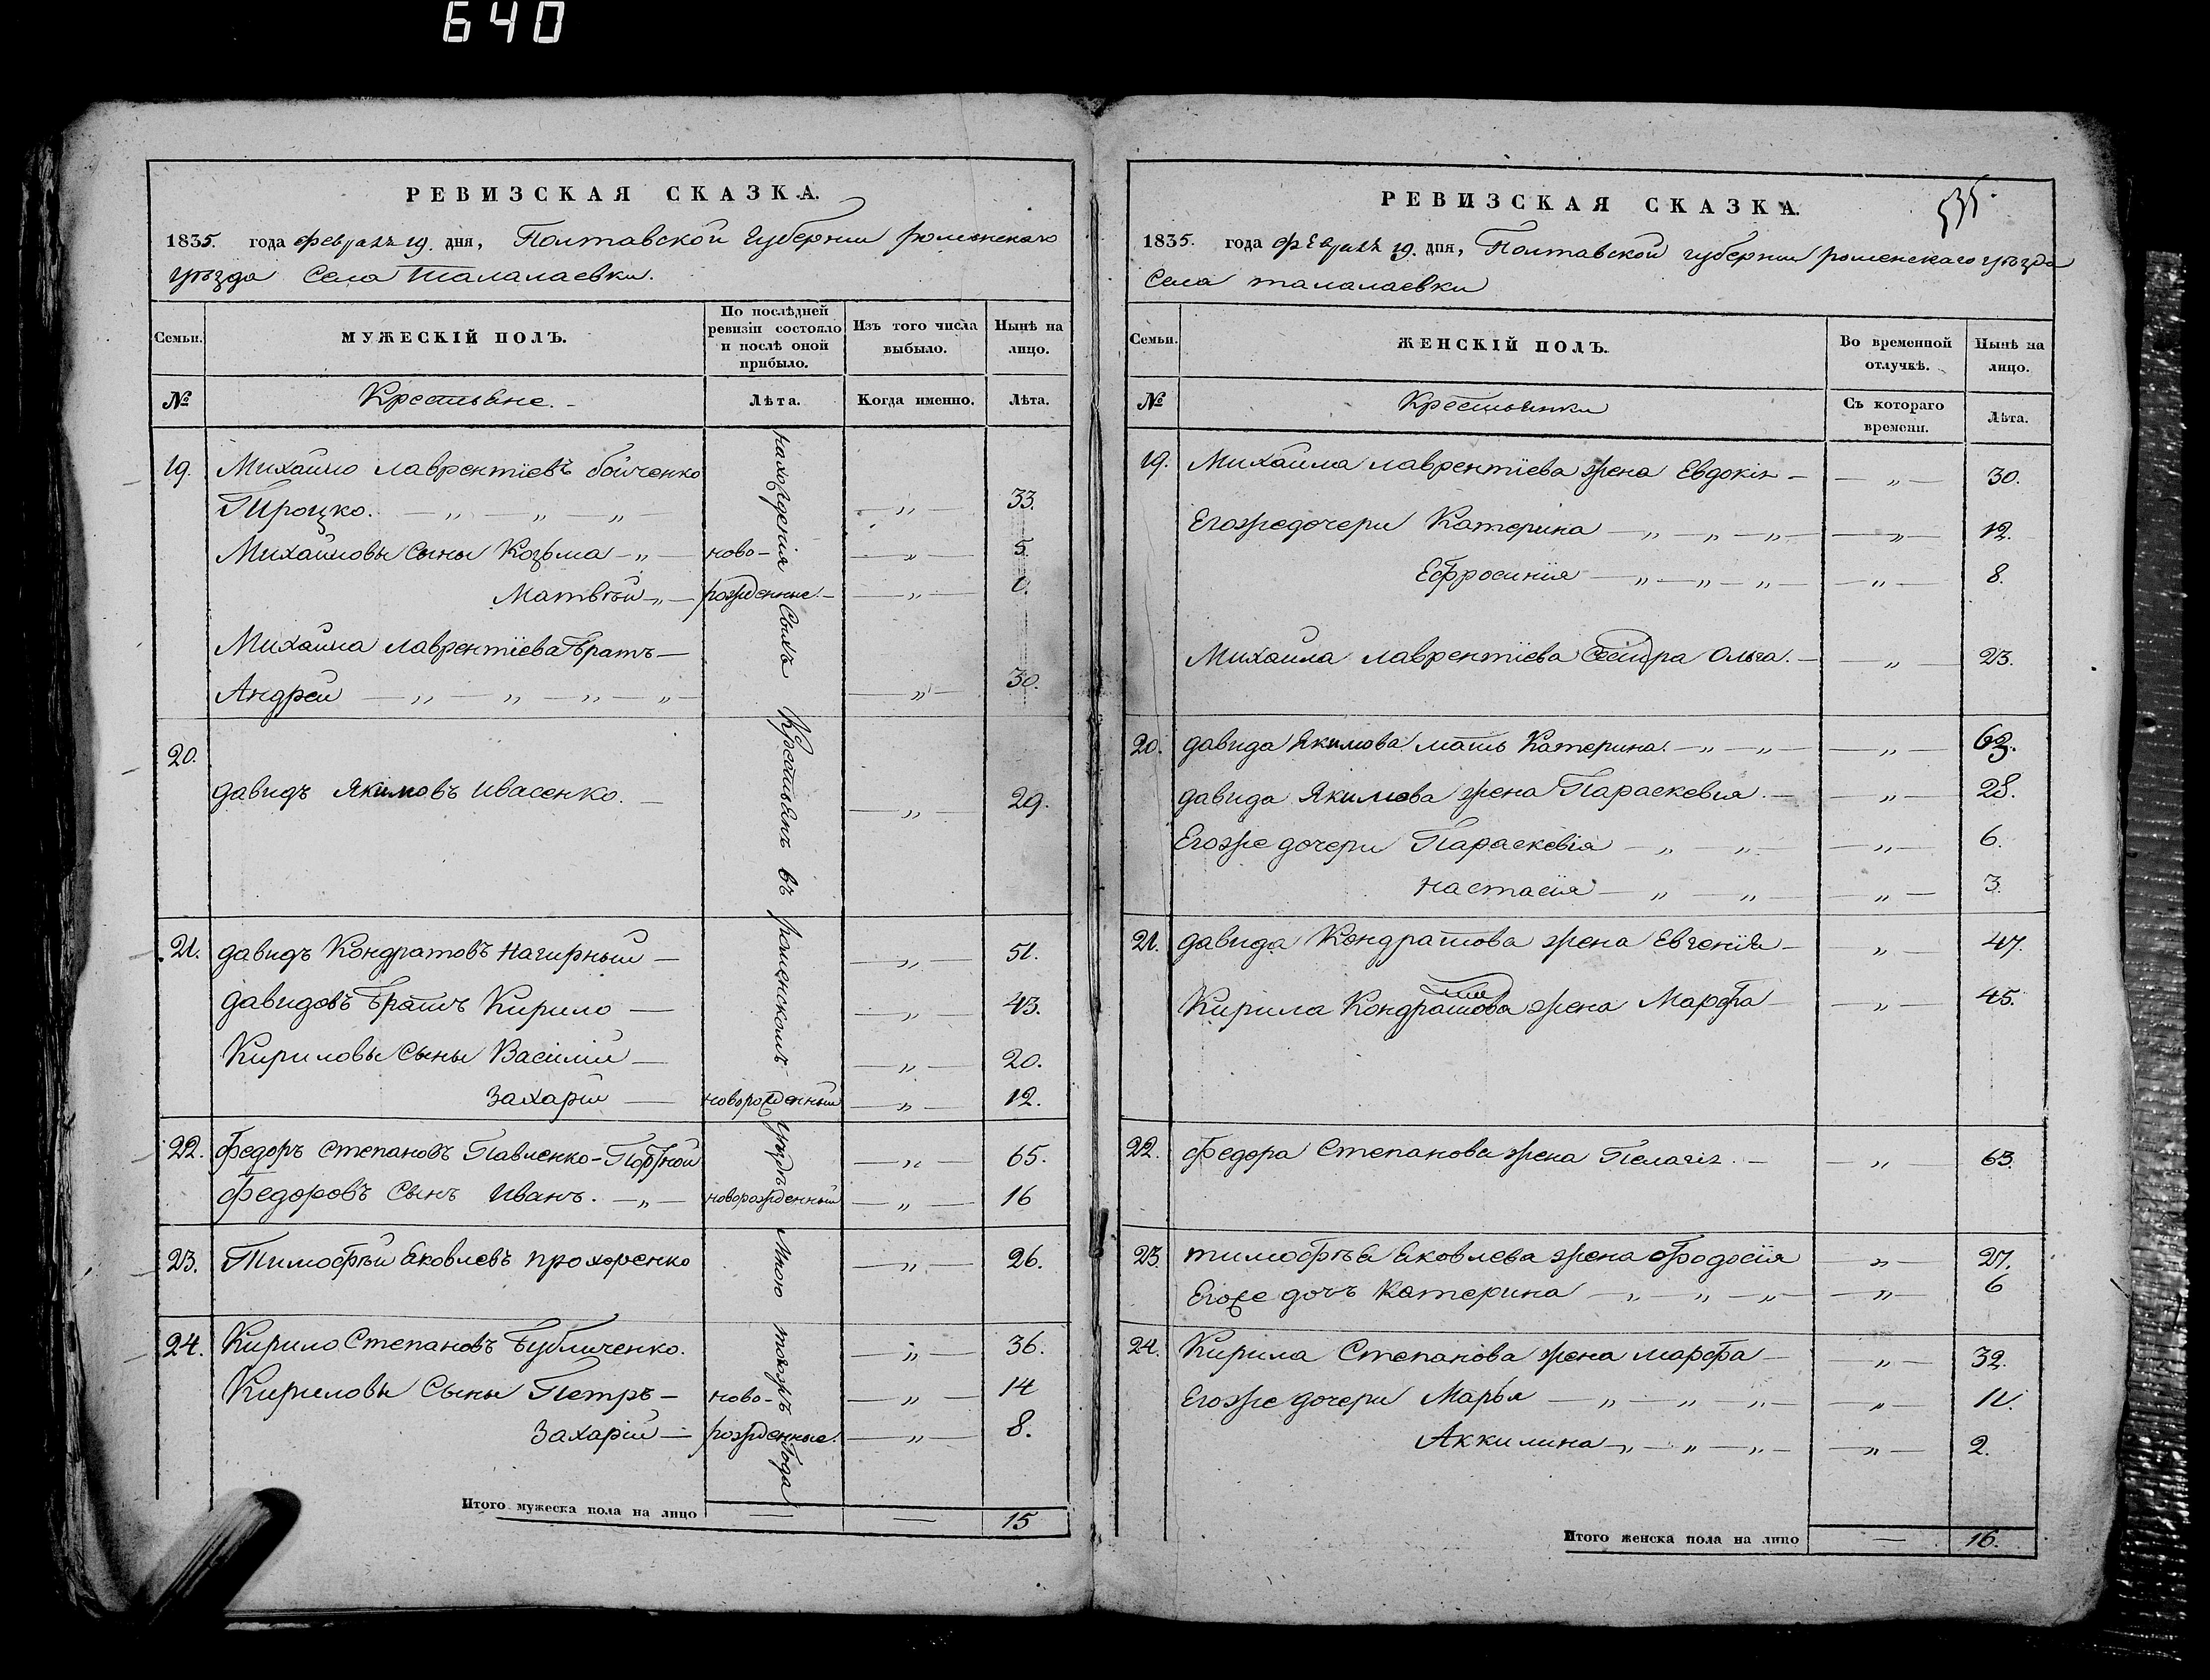 640
РЕВИЗСКАЯ СКАЗКА.
1835. года февраля 19. дня, Полтавской Губернии роменскаго
уѣзда Села Талалаевки.
Семьи. МУЖЕСКІЙ ПОЛЪ. По послѣдней ревизіи состояло и послѣ оной прибыло. Изъ того числа выбыло. Нынѣ на лицо.
№ Крестьяне. Лѣта. Когда именно. Лѣта.
19. Михайло лаврентіевъ бойченко
Троцко. — „ — „ — „ — — „ — 33.
Михайловы Сыны Козьма — „ — ново- — „ — 5.
Матвѣй — „ — рожденные. — — „ —
Михайла лаврентіева братъ —
Андрей — „ — „ — „ — „ — — „ — 30.
20.
давидъ Якимовъ Ивасенко. — — „ — 29.
21. давидъ Кондратовъ Нагирный — — „ — 51.
давидовъ братъ Кирило — — „ — 43.
Кириловы Сыны Василій — — „ — 20.
Захарій — новорожденный — „ — 12.
22. Федоръ Степановъ Павленко- — „ — 65.
Федоровъ Сынъ Иванъ. — „ — новорожденный — „ — 16
23. Тимофѣй Яковлевъ прохоренко — „ — 26.
24. Кирило Степановъ Бубличенко. — „ — 36.
Кириловы Сыны Петръ — ново- — „ — 14
Захарій — рожденные. — „ — 8.
Итого мужеска пола на лицо — — 15
Сихъ Крестьянъ въ роменскомъ уѣздѣ Года
РЕВИЗСКАЯ СКАЗКА.
535.
1835. года февраля 19. дня, Полтавской губернии роменскаго уѣзда
Села талалаевки
Семьи. ЖЕНСКІЙ ПОЛЪ. Во временной отлучкѣ. Нынѣ на лицо.
№ Крестьянки Съ котораго времени. Лѣта.
19. Михайла лаврентіева жена Евдокія — — „ — 30.
Егожедочери Катерина — „ — „ — „ — — „ — 12.
Ефросинія — „ — „ — „ — — „ — 8.
Михайла лаврентіева Сестра Ольга. — — „ — 23.
20. давида Якимова мать Катерина. — „ — „ — — „ — 63.
давида Якимова жена Параскевія. — — „ — 28.
Егоже дочери Параскевія — „ „ — — „ — 6.
настасія — „ — „ — — „ — 3.
21. давида Кондратова жена Евгенія — — „ — 47.
Кирила Кондратова жена Марфа — — „ — 45.
22. Федора Степанова жена Пелагія. — — „ — 63.
23. тимофѣя Яковлева жена Фодосія — „ — 27.
Егоже дочь Катерина — „ — „ — „ — — „ — 6
24. Кирила Степанова жена марфа — — „ — 32.
Егоже дочери Марья — „ — „ — „ — — „ — 11.
Аккилина — „ — „ — „ — — „ — 2.
Итого женска пола на лицо — 16.